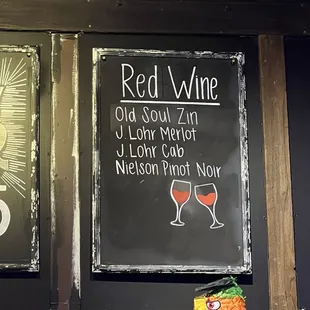 Red Wine
Old Soul Zin
J. Lohr Merlot
J. Lohr Cab
Nielson Pinot Noir